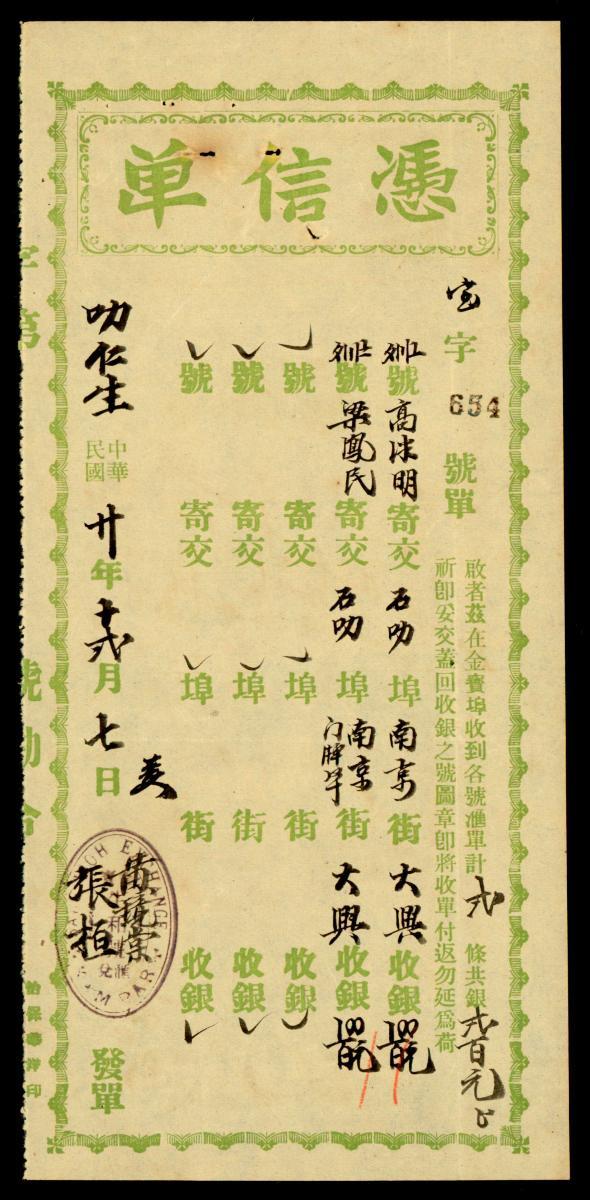 憑信单
字 654 號單
啟者茲在金寶埠收到各號滙單計 弍 條共銀 弍百元
祈即妥交蓋回收銀之號圖章卽將收單付返勿延爲荷
號 高洣明 寄交 石叻 埠 南京 街 大興 收銀
號 梁鳳民 寄交 石叻 埠 南京 街 大興 收銀
號 寄交 埠 街 收銀
號 寄交 埠 街 收銀
號 寄交 埠 街 收銀
叻仁生 中華民國 廿年 十弍月 七日 發單
張桓
EXCHANGE